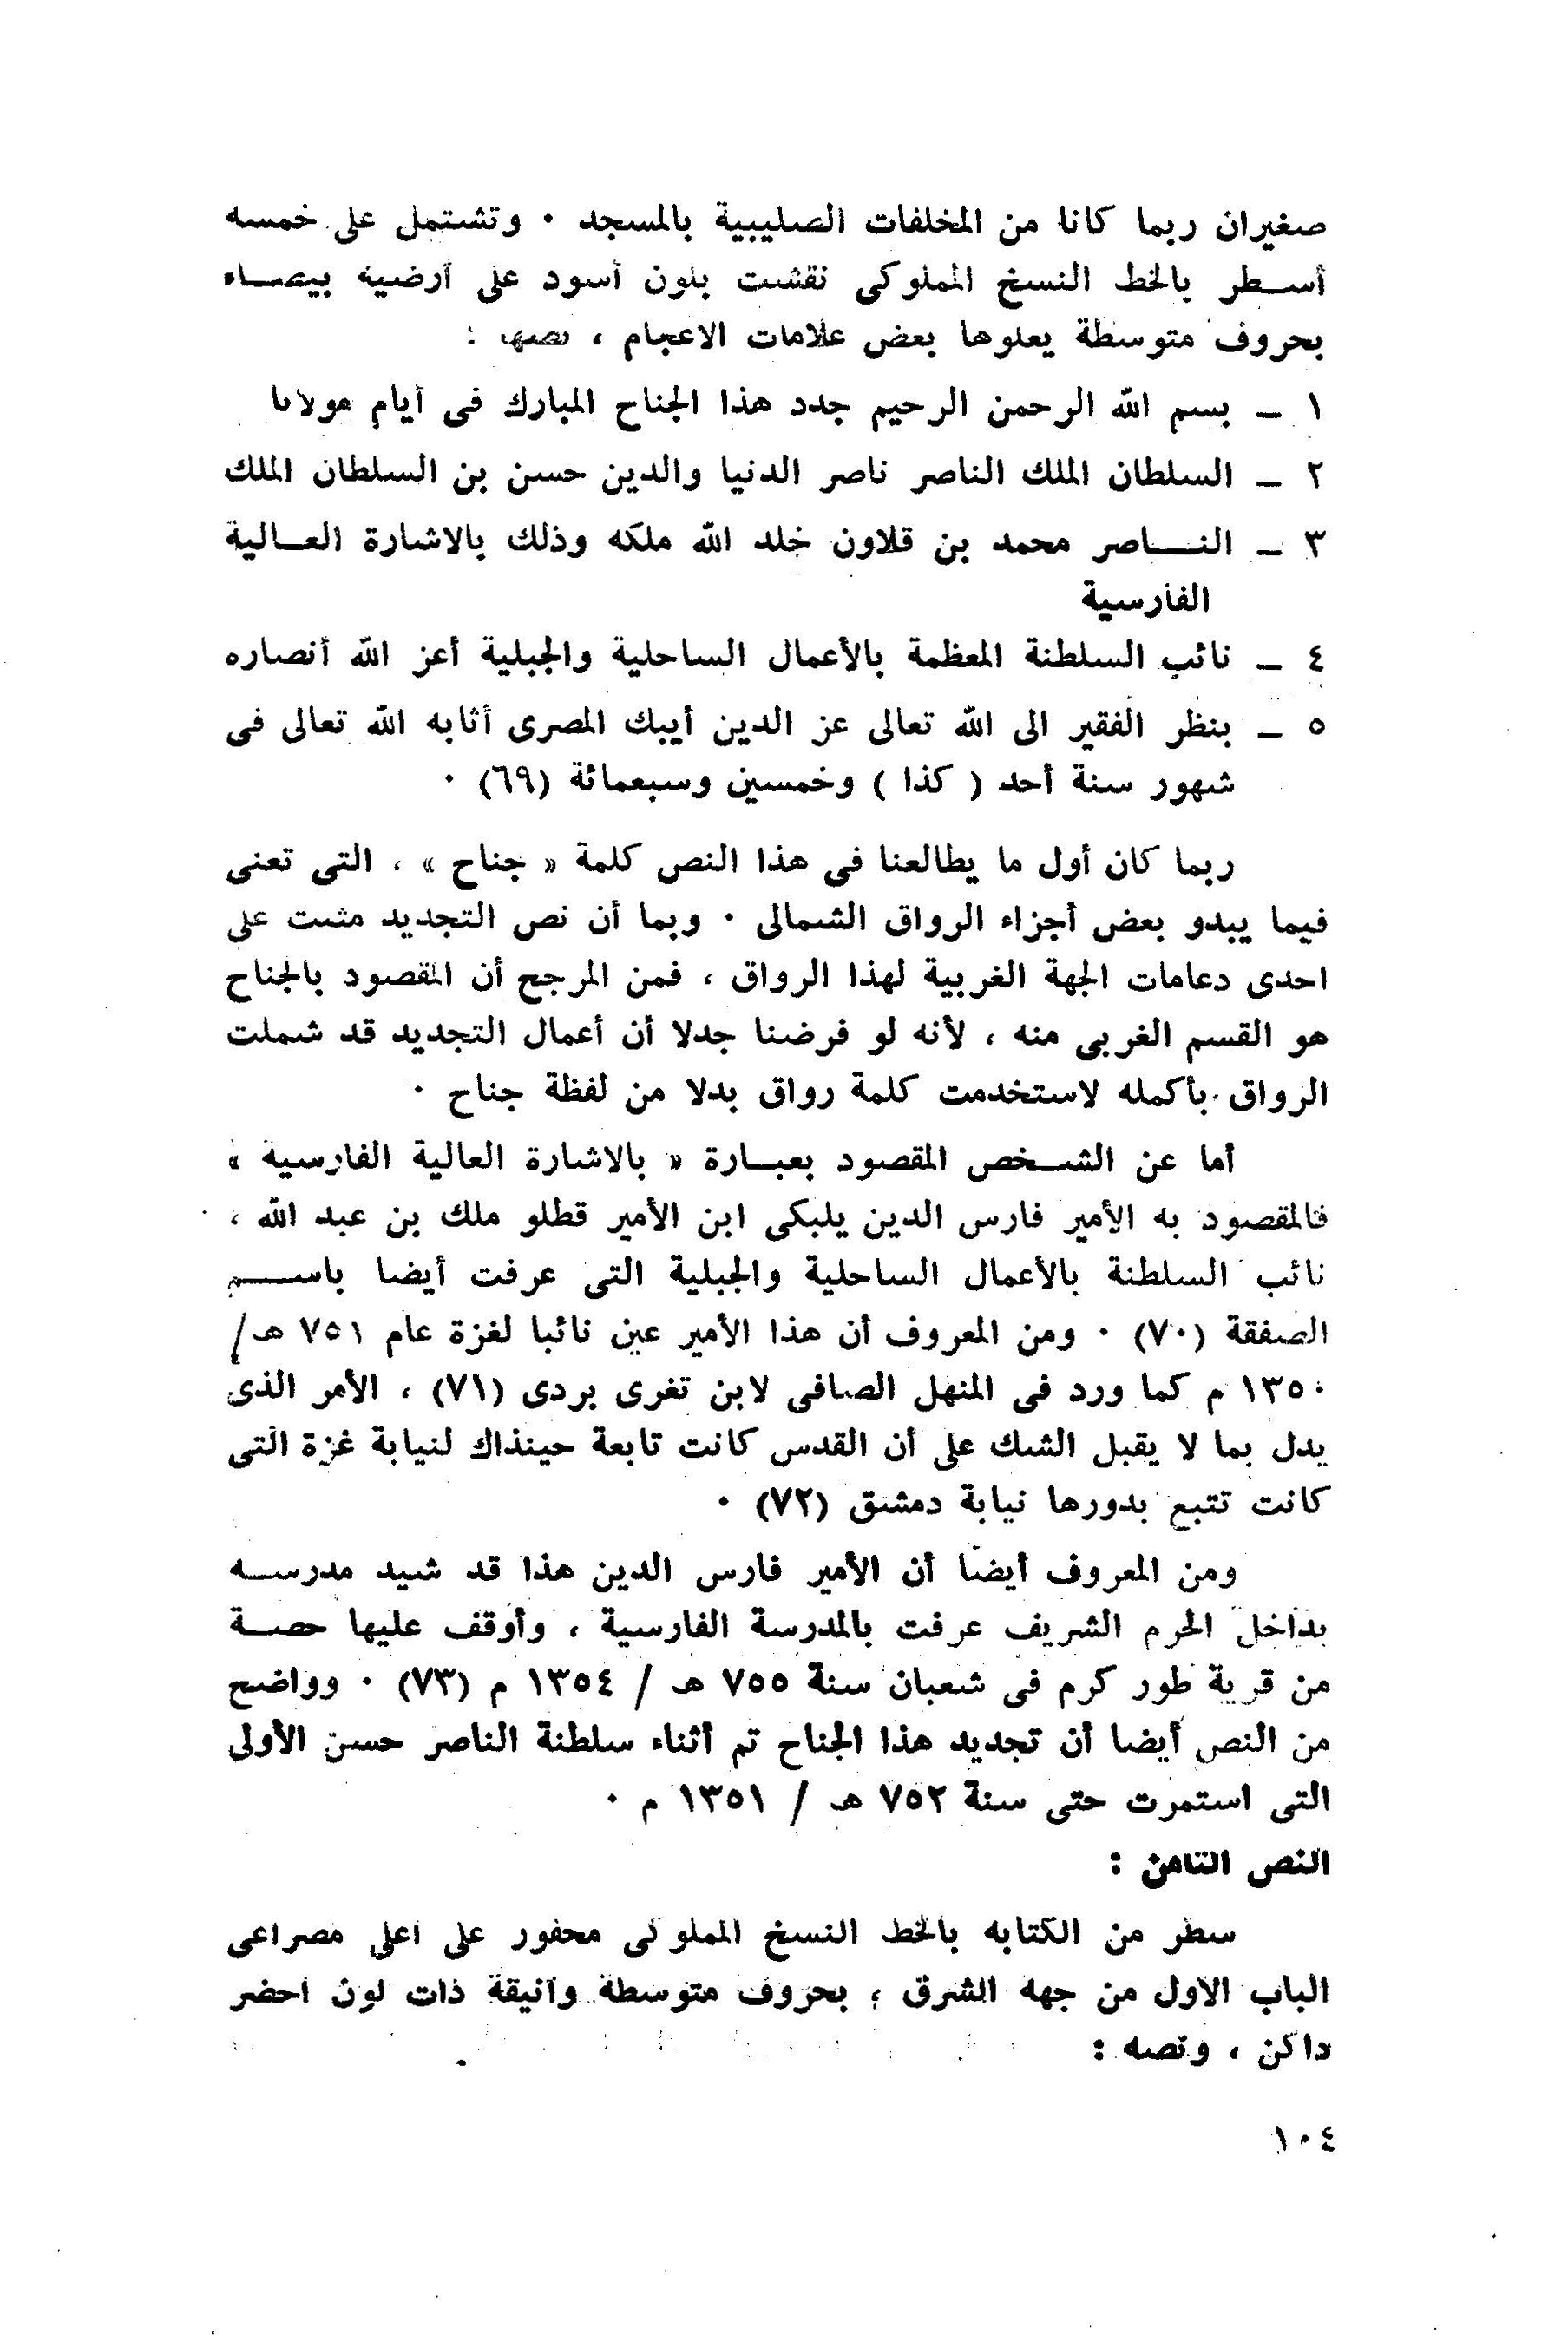 صغيران ربما كانا من المخلفات الصليبية بالمسجد ٠ وتشتمل على خمسة
أســطر بالخط النسخ المملوكى نقشت بلون أسود على أرضية بيضــاء
بحروف متوسطة يعلوها بعض علامات الاعجام ، نصها :
١ ـ بسم الله الرحمن الرحيم جدد هذا الجناح المبارك فى أيام مولانا
٢ ـ السلطان الملك الناصر ناصر الدنيا والدين حسن بن السلطان الملك
٣ ـ النـــاصر محمد بن قلاون خلد الله ملكه وذلك بالاشارة العــالية
الفارسية
٤ ـ نائب السلطنة المعظمة بالأعمال الساحلية والجبلية أعز الله أنصاره
٥ ـ بنظر الفقير الى الله تعالى عز الدين أيبك المصرى أثابه الله تعالى فى
شهور سنة أحد ( كذا ) وخمسين وسبعمائة (٦٩) ٠
ربما كان أول ما يطالعنا فى هذا النص كلمة « جناح » ، التى تعنى
فيما يبدو بعض أجزاء الرواق الشمالى ٠ وبما أن نص التجديد مثبت على
احدى دعامات الجهة الغربية لهذا الرواق ، فمن المرجح أن المقصود بالجناح
هو القسم الغربى منه ، لأنه لو فرضنا جدلا أن أعمال التجديد قد شملت
الرواق بأكمله لاستخدمت كلمة رواق بدلا من لفظة جناح ٠
أما عن الشــخص المقصود بعبــارة « بالاشارة العالية الفارسية »
فالمقصود به الأمير فارس الدين يلبكى ابن الأمير قطلو ملك بن عبد الله ،
نائب السلطنة بالأعمال الساحلية والجبلية التى عرفت أيضا باســـم
الصفقة (٧٠) ٠ ومن المعروف أن هذا الأمير عين نائبا لغزة عام ٧٥١ هـ/
١٣٥٠ م كما ورد فى المنهل الصافى لابن تغرى بردى (٧١) ، الأمر الذى
يدل بما لا يقبل الشك على أن القدس كانت تابعة حينذاك لنيابة غزة التى
كانت تتبع بدورها نيابة دمشق (٧٢) ٠
ومن المعروف أيضا أن الأمير فارس الدين هذا قد شيد مدرســة
بداخل الحرم الشريف عرفت بالمدرسة الفارسية ، وأوقف عليها حصــة
من قرية طور كرم فى شعبان سنة ٧٥٥ هـ / ١٣٥٤ م (٧٣) ٠ وواضح
من النص أيضا أن تجديد هذا الجناح تم أثناء سلطنة الناصر حسن الأولى
التى استمرت حتى سنة ٧٥٢ هـ / ١٣٥١ م ٠
النص الثامن :
سطر من الكتابة بالخط النسخ المملوكى محفور على أعلى مصراعى
الباب الأول من جهة الشرق ، بحروف متوسطة وأنيقة ذات لون أخضر
داكن ، ونصه :
١٠٤